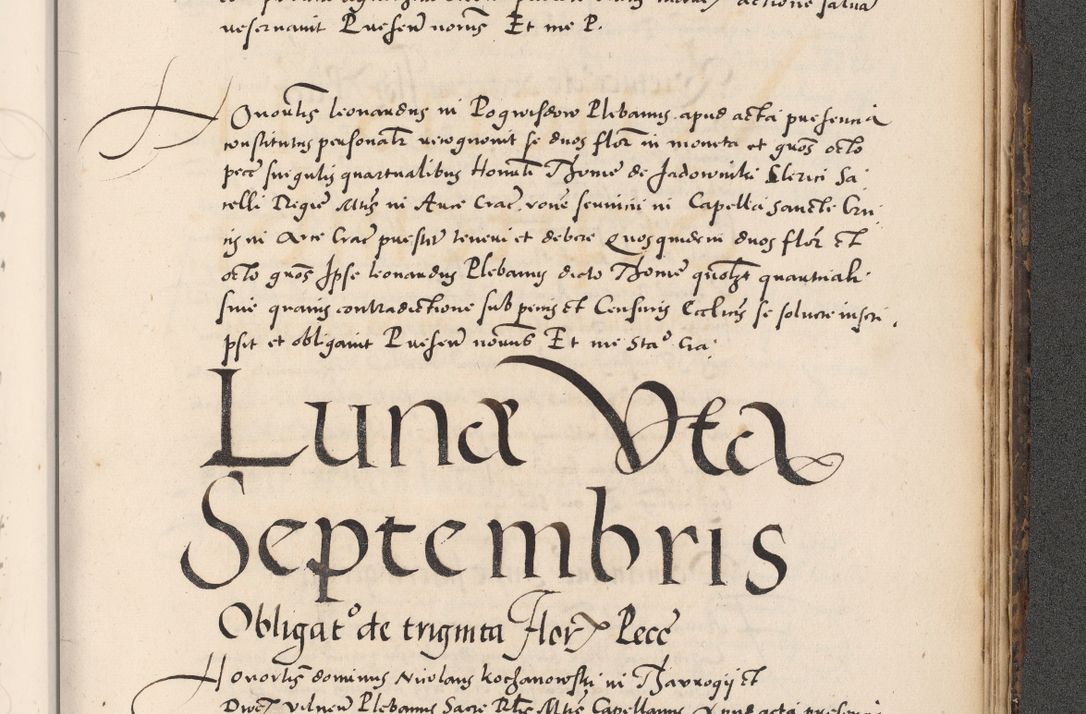 reservavit Presen nonis Et me P.
Honorabilis leonardus in Pogwisdow Plebanus apud acta presencia
constitutus personalr recognovit se duos flor in moneta et gros octo
pecc singulis quartualibus Honorabli Thome de Jadowniki Clerici Sa
celli Regie Mtis in Arce Crac, rone servicii in Capella Sancte Cru
cis in Arce Crac prestiti teneri et debere Quosquidem duos flor et
octo gros Ipse leonardus Plebanus dicto Thome quolzt quartuali
sine quavis contradictione sub penis et Censuris Ecclicis se solvere inscri
psit et obligavit Presen nonis Et me Sta Cra
Lunæ Vta
Septembris
Obligato de triginta Flor Pecc
Honorlis dominus Nicolaus Kochanowski in Tharnogij et
Plebanus Sacre Mtis Capellanus Apud acta presencia